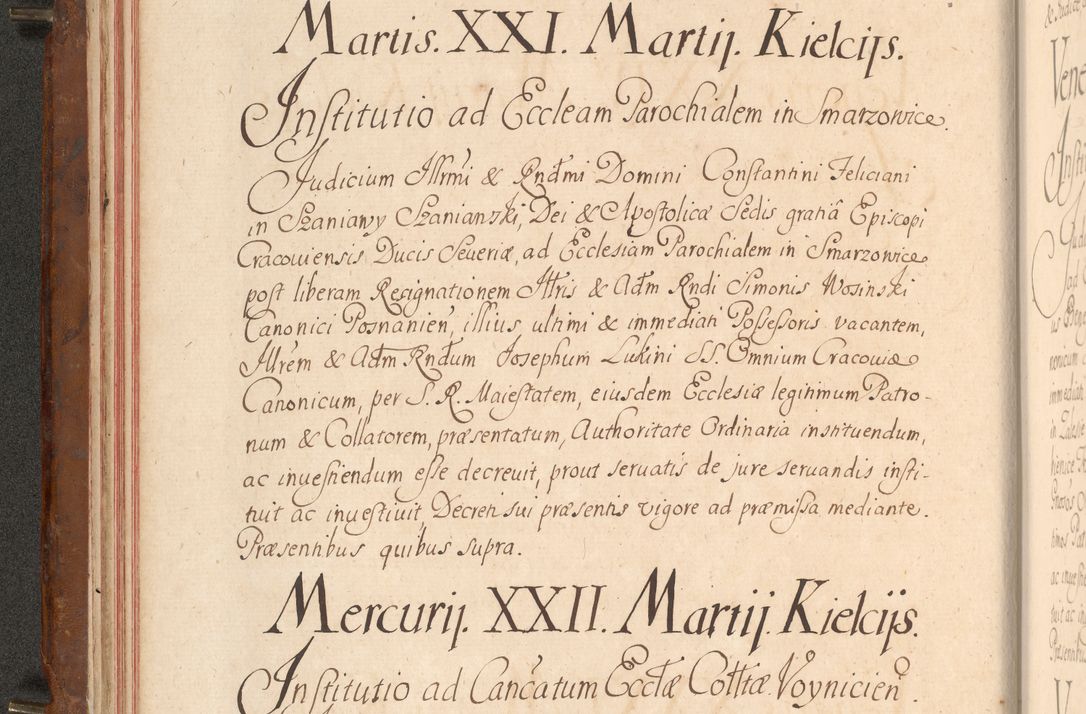 Martis. XXI. Martij. Kielcijs.
Institutio ad Eccleam Parochialem in Smarzowice.
Judicium Illrmi & Rndmi Domini Constantini Feliciani
in Szaniawy Szaniawski, Dei & Apostolicæ Sedis gratiâ Episcopi
Cracoviensis Ducis Severiæ, ad Ecclesiam Parochialem in Smarzowice
post liberam Resignationem Illris & Adm Rndi Simonis Wosinski
Canonici Posnanien, illius ultimi & immediati Possessoris vacantem,
Illrem & Adm Rndum Josephum Lukini SS. Omnium Cracoviæ
Canonicum, per S. R. Maiestatem, eiusdem Ecclesiæ legitimum Patro-
num & Collatorem, præsentatum, Authoritate Ordinaria instituendum,
ac investiendum esse decrevit, prout servatis de jure servandis insti-
tuit ac investivit, Decreti sui præsentis vigore ad præmissa mediante.
Præsentibus quibus supra.
Mercurij. XXII. Martij. Kielcijs.
Institutio ad Cancatum Ecclæ Colltæ Voynicien.